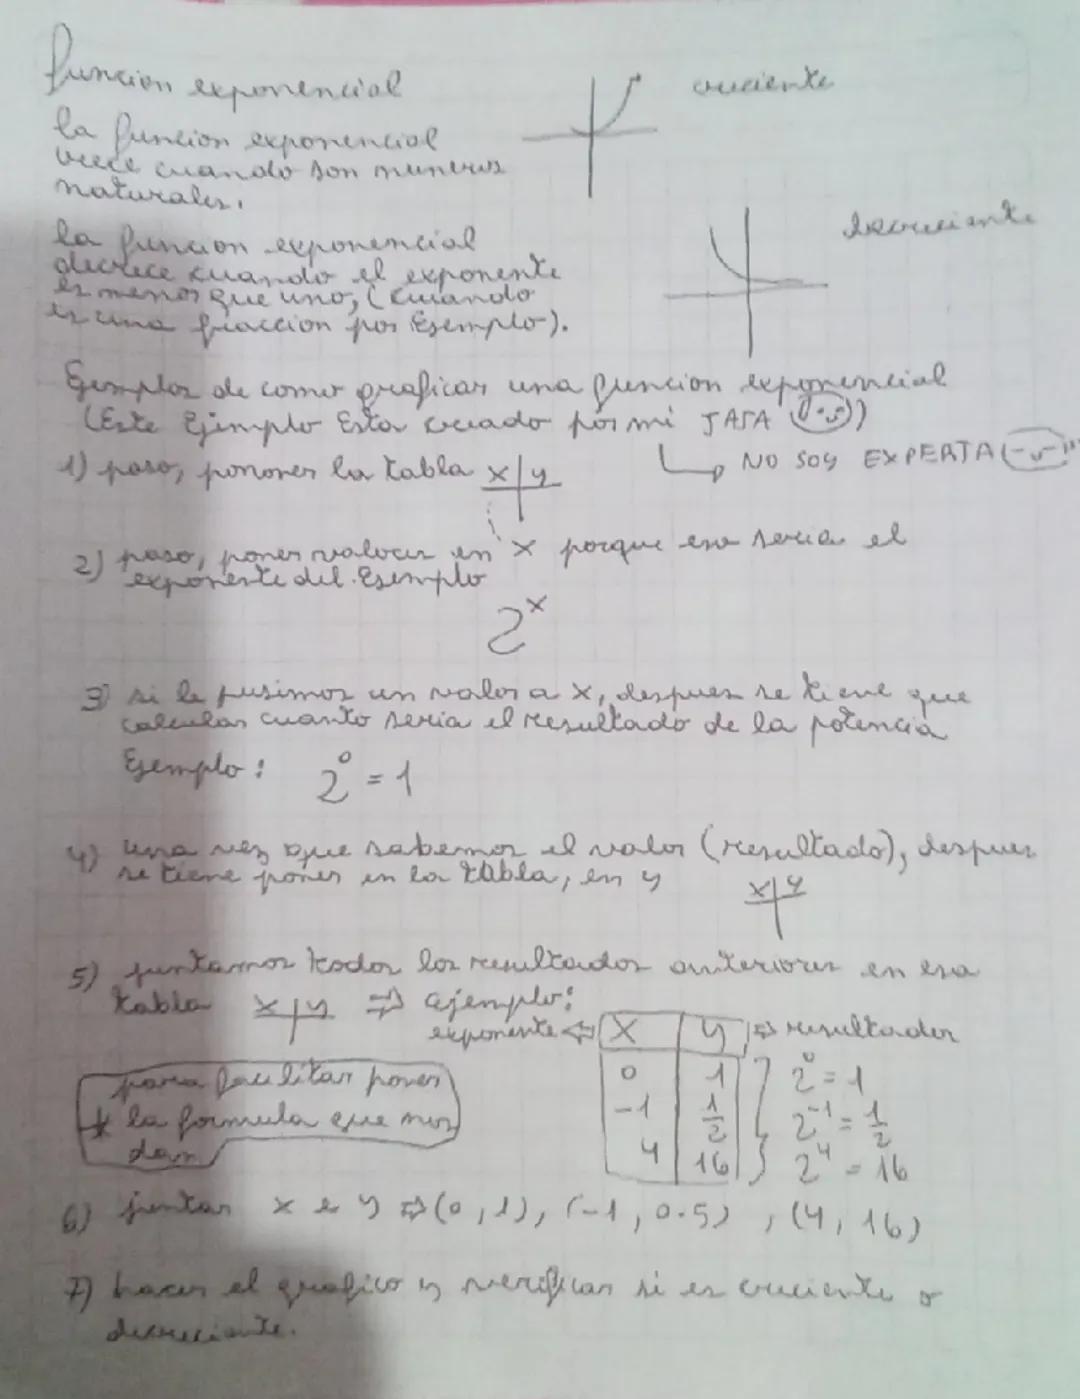 funcion exponencial
creciente
la funcion exponencial
crece cuando son numeros
naturales.
decreciente
la funcion exponencial
decrece cuando el exponente
es menos que uno, (cuando
es una fraccion por Ejemplo).
Ejemplos de como graficar una funcion exponencial
(Este Ejemplo Esta creado por mi JAJA)
NO SOY EXPERTA
1) paso, ponemos la tabla x y
2) paso, poner valores en x porque ese seria el
exponente del Ejemplo
2ˣ
3) si le pusimos un valor a x, despues se tiene que
calcular cuanto seria el resultado de la potencia
Ejemplo: 2⁰ = 1
4) una vez que sabemos el valor (resultado), despues
se tiene poner en la tabla, en y x y
5) juntamos todos los resultados anteriores en esa
tabla x y ⇒ ejemplo:
exponente ⇐ x y ⇒ resultados
0 1 2⁰ = 1
-1 1/2 2⁻¹ = 1/2
4 16 2⁴ = 16
para facilitar poner
* la formula que nos
dan
6) juntar x e y ⇒ (0, 1), (-1, 0.5), (4, 16)
7) hacer el grafico y verificar si es creciente o
decreciente.